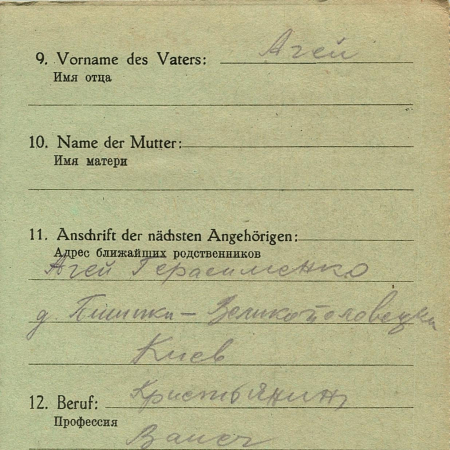 9. Vorname des Vaters: Агей
Имя отца
10. Name der Mutter:
Имя матери
11. Anschrift der nächsten Angehörigen:
Адрес ближайших родственников
Агей Герасименко
д.
Киев
12. Beruf: Кристьянин
Профессия